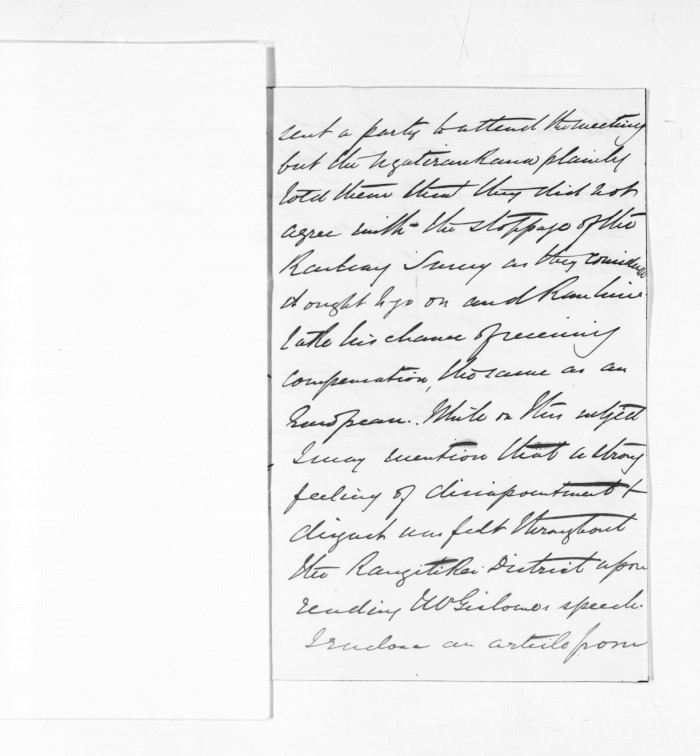 sent a party to attend the meeting
but the Ngatiraukawa plainly
told them that they did not
agree with the stoppage of the
Railway Survey as they considered
it ought to go on and Rawhiri
take his chance of receiving
compensation, the same as an
European. While on this subject
I may mention that a strong
feeling of disappointment &
disgust was felt throughout
the Rangitikei District upon
reading Mr Gisborne's speech.
I enclose an article from